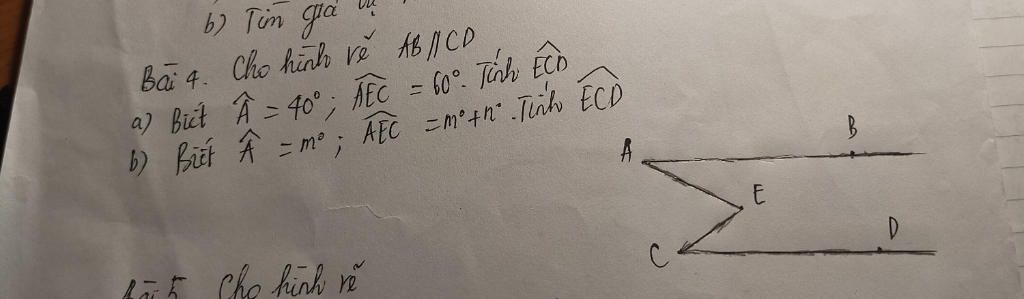 b) Tìm giá trị
Bài 4. Cho hình vẽ AB // CD
a) Biết Â = 40°; AEC = 60°. Tính ECD
b) Biết Â = m°; AEC = m°+n°. Tính ECD
A
B
E
C
D
Bài 5 Cho hình vẽ